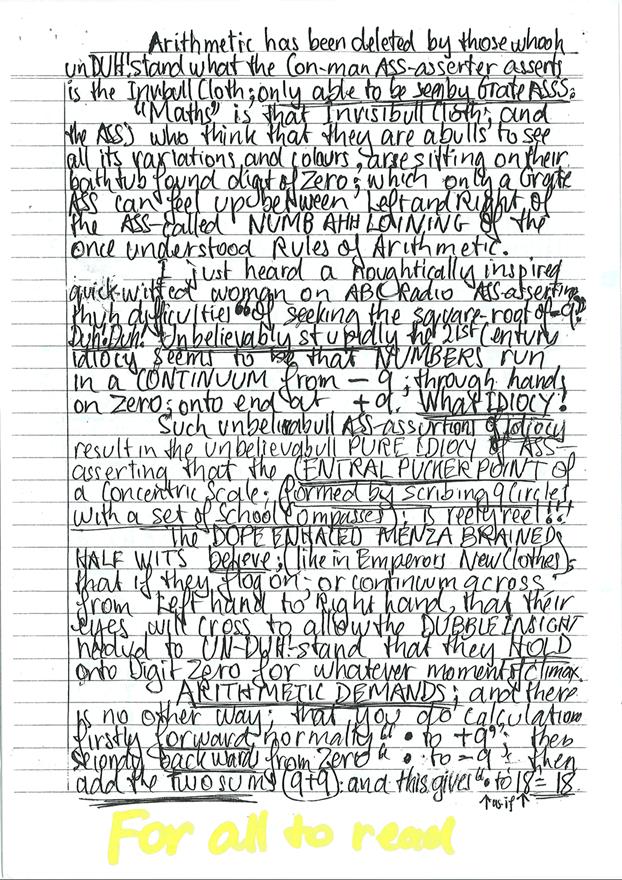 Arithmetic has been deleted by those whooh
unDUH!stand what the Con-man ASS-asserter asserts
is the Invibull Cloth; only able to be seen by Grate ASSS.
"Maths" is that Invisibull Cloth; and
the ASS) who think that they are abulls to see
all its variations, and colours, arse sitting on their
bathtub found digit of Zero; which only a Grate
ASS can feel up between Left and Right of
the ASS-called NUMB AHH LOINING of the
once understood Rules of Arithmetic.
I just heard a Noughtically inspired
quick-witted woman on ABC Radio ASS-asserting
thuh difficulties "of seeking the square-root of -9."
Duh! Duh! Unbelievably stupidly the 21st Century
idiocy seems to be that NUMBERS run
in a CONTINUUM from -9; through hands
on Zero; onto end out +9. What IDIOCY!
Such unbelievabull ASS-assurtions of Idiocy
result in the unbelievabull PURE IDIOCY of ASS-
asserting that the CENTRAL PUCKER POINT of
a Concentric Scale; (formed by scribing 9 Circles
with a set of School Compasses); is reely reel!!!
The DOPE ENHACED MENZA BRAINED
HALF WITS believe; (like in Emperors New Clothes);
that if they flog on; or continuum across
from Left hand to Right hand, that their
eyes will cross to allow the DUBBLE INSIGHT
needed to UN-DUH-stand that they HOLD
onto Digit Zero for whatever moments of climax.
ARITHMETIC DEMANDS; and there
is no other way; that you do calculation
firstly forward normally " • to +9"; then
secondly backward from Zero " • to -9"; then
add the two sums (9+9); and this gives " • to 18 = 18.
↑as if↑
For all to read